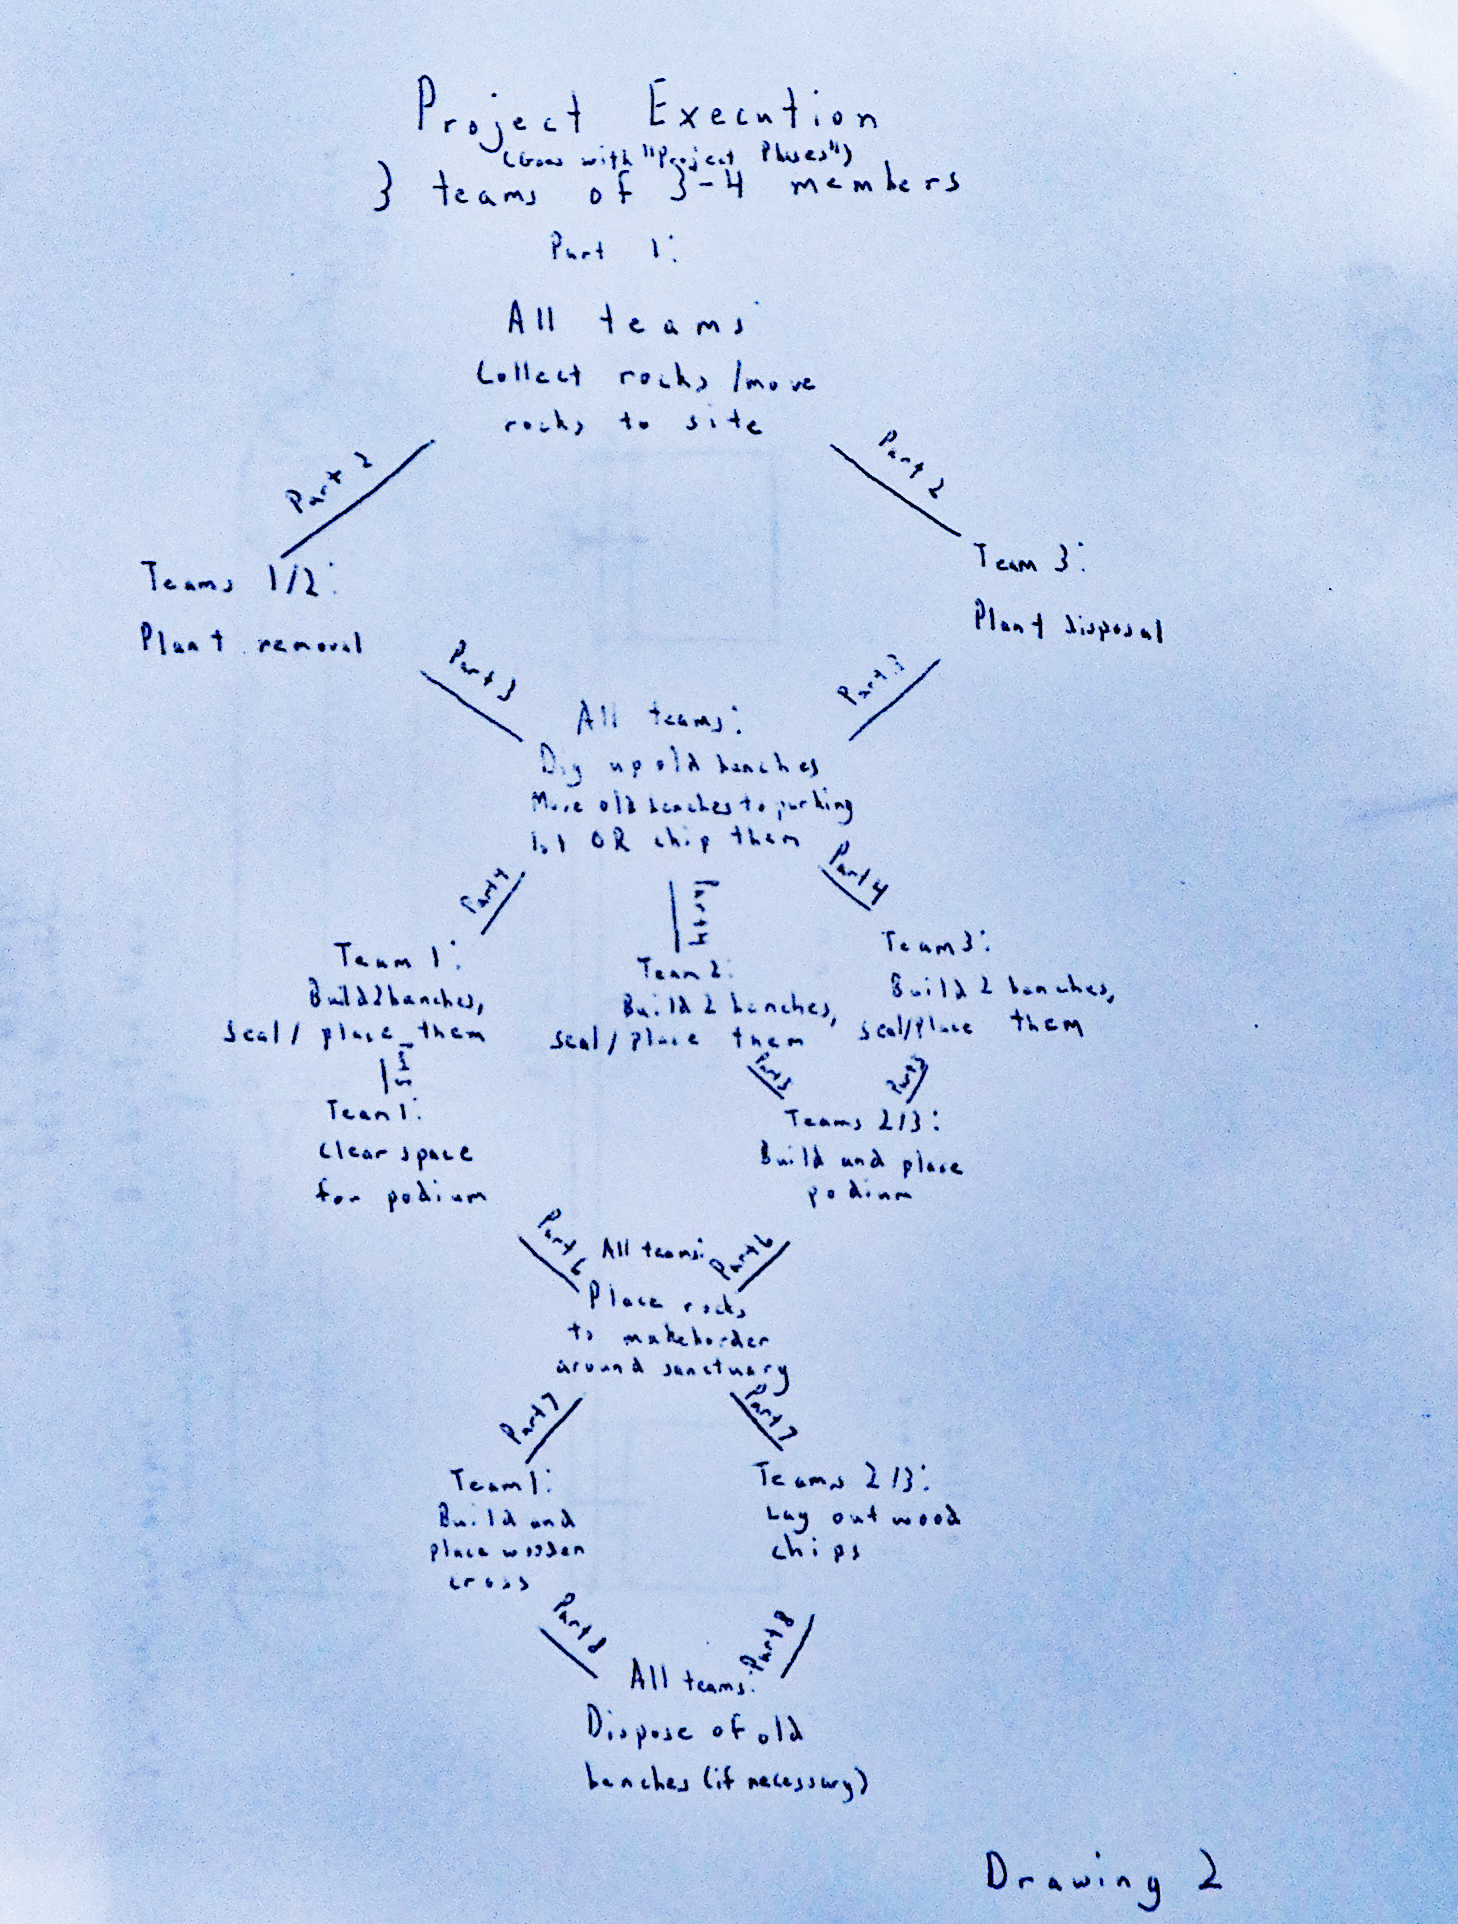 Project Execution
(Goes with "Project Phases")
3 teams of 3-4 members
Part 1:
All teams
Collect rocks /move
rocks to site
Part 2
Part 2
Teams 1/2:
Plant removal
Team 3:
Plant disposal
Part 3
Part 3
All teams:
Dig up old benches
Move old benches to parking
lot OR chip them
Part 4
Part 4
Part 4
Team 1:
Build 2 benches,
seal / place them
Team 2:
Build 2 benches,
seal / place them
Team 3:
Build 2 benches,
seal/place them
Part 5
Part 5
Part 5
Team 1:
Clear space
for podium
Teams 2/3:
Build and place
podium
Part 6
Part 6
All teams:
Place rocks
to make border
around sanctuary
Part 7
Part 7
Team 1:
Build and
place wooden
cross
Teams 2/3:
Lay out wood
chips
Part 8
Part 8
All teams:
Dispose of old
benches (if necessary)
Drawing 2